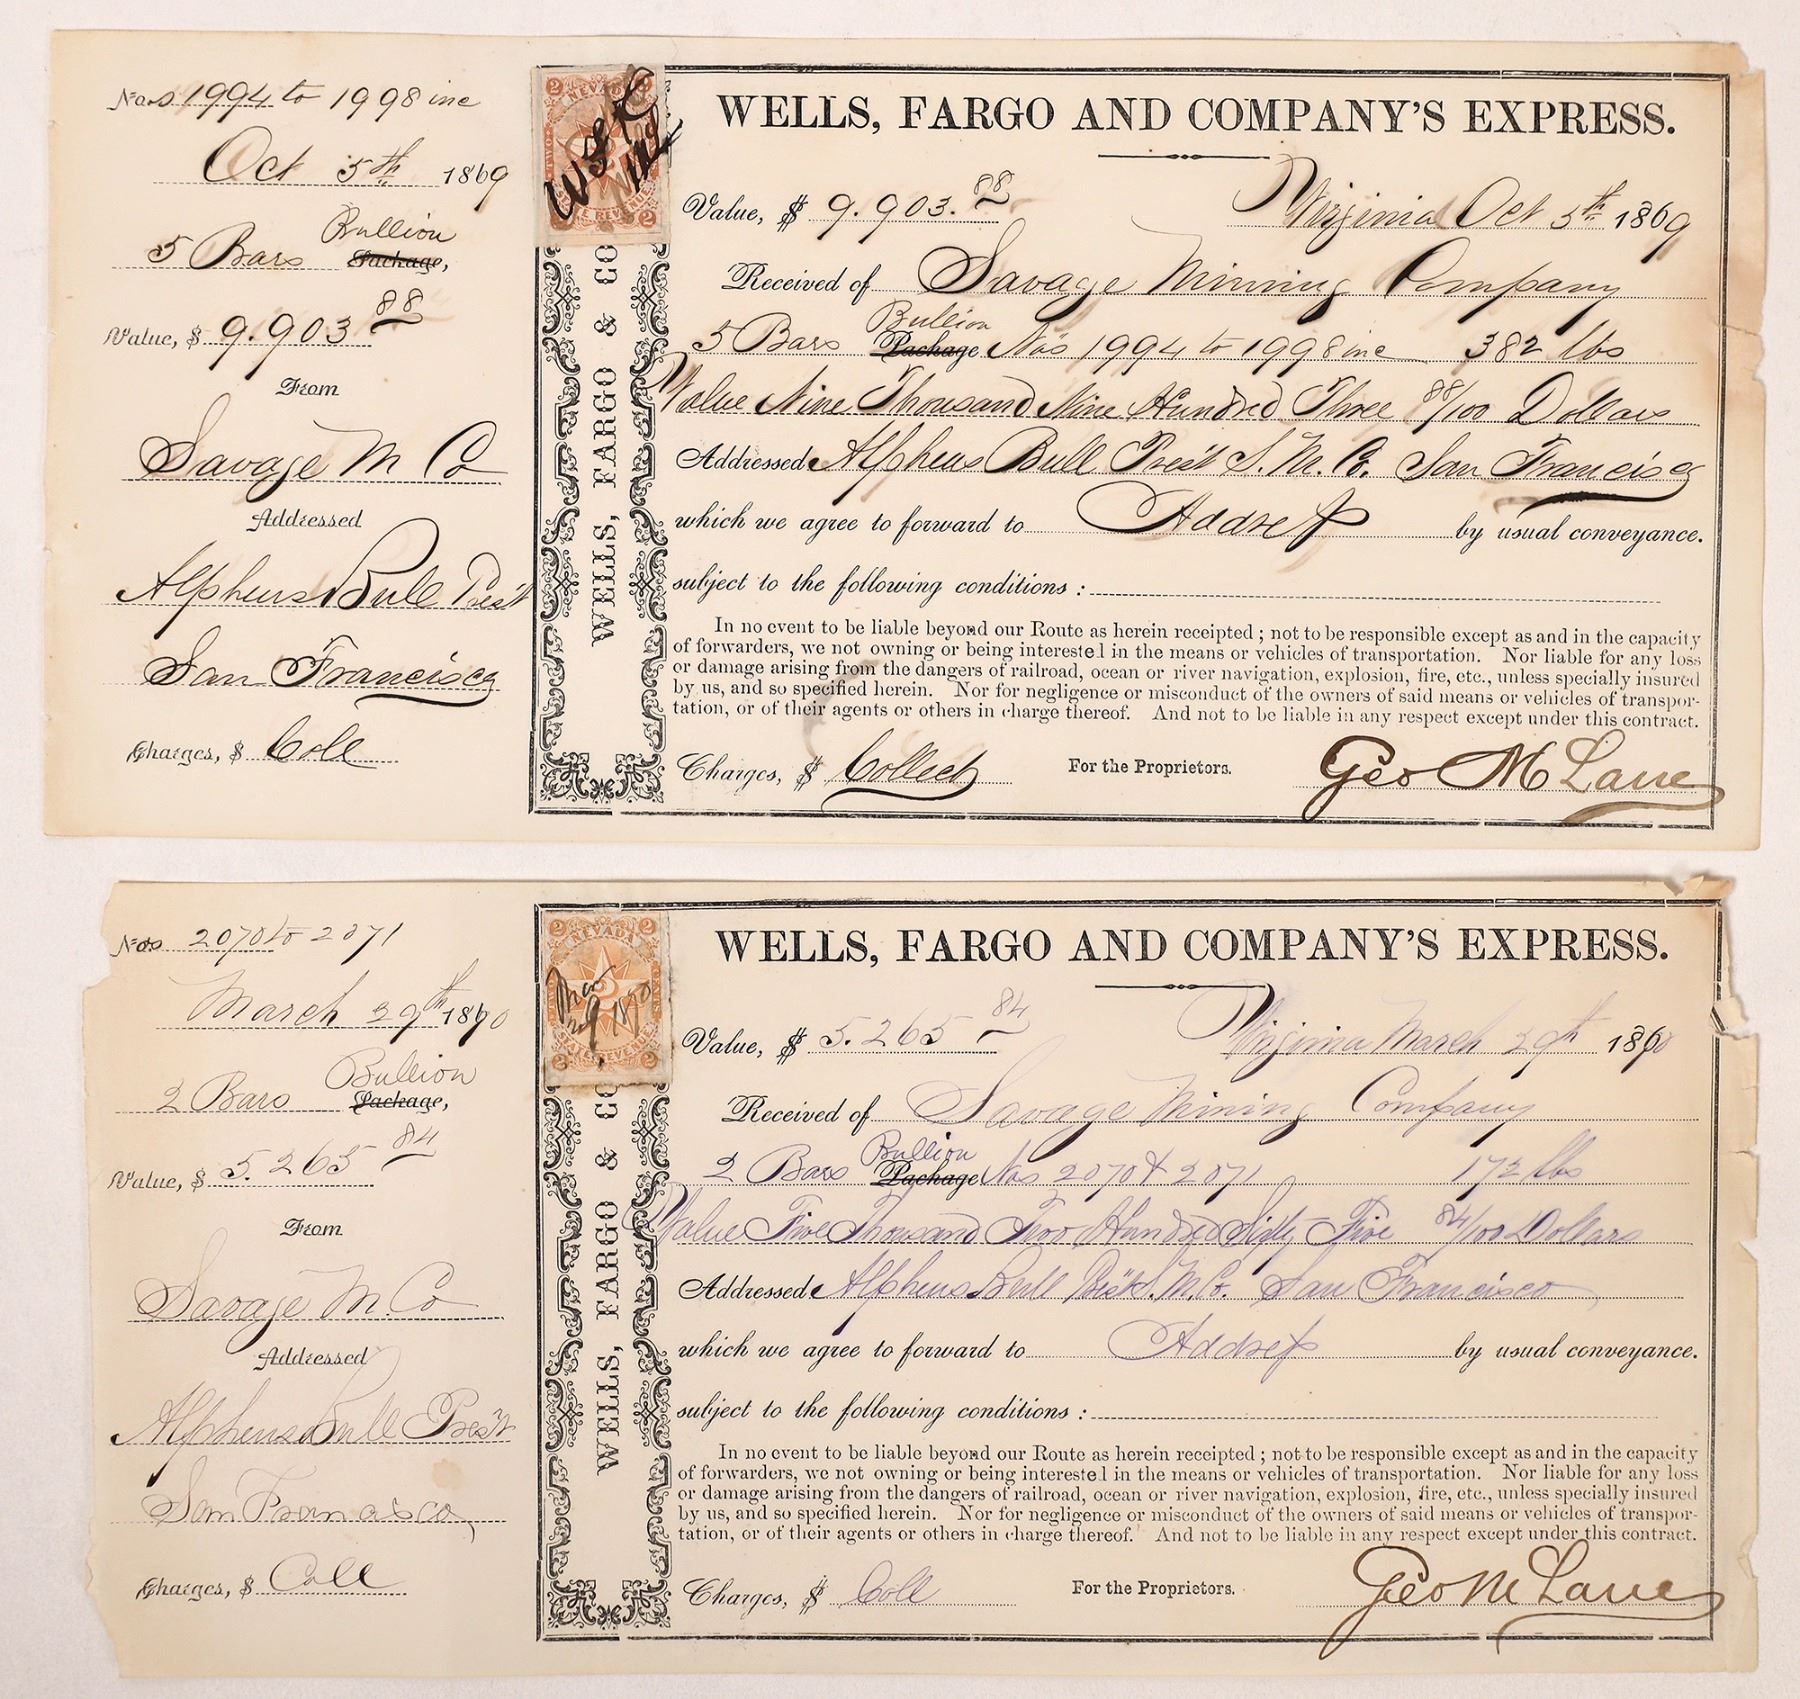 Nos 1994 to 1998 inc
Oct 5th 1869
5 Bars Bullion Package,
Value, $ 9.903 88
From
Savage M Co
Addressed
Alpheus Bull Prest
San Francisco
Charges, $ Coll
2 NEVADA 2
TWO
2 STATE REVENUE 2
W F & Co
WELLS, FARGO & CO
WELLS, FARGO AND COMPANY'S EXPRESS.
Value, $ 9.903. 88 Virginia Oct 5th 1869
Received of Savage Mining Company
5 Bars Bullion Package Nos 1994 to 1998 inc 382 lbs
Value Nine Thousand Nine Hundred Three 88/100 Dollars
Addressed Alpheus Bull Prest S. M. Co. San Francisco
which we agree to forward to Address by usual conveyance.
subject to the following conditions :
In no event to be liable beyond our Route as herein receipted ; not to be responsible except as and in the capacity
of forwarders, we not owning or being interested in the means or vehicles of transportation. Nor liable for any loss
or damage arising from the dangers of railroad, ocean or river navigation, explosion, fire, etc., unless specially insured
by us, and so specified herein. Nor for negligence or misconduct of the owners of said means or vehicles of transpor-
tation, or of their agents or others in charge thereof. And not to be liable in any respect except under this contract.
Charges, $ Collect For the Proprietors. Geo M Lane
Nos 2070 to 2071
March 29th 1870
2 Bars Bullion Package,
Value, $ 5.265 84
From
Savage M. Co
Addressed
Alpheus Bull Prest
San Francisco,
Charges, $ Coll
2 NEVADA 2
CENTS
2 STATE REVENUE 2
Mar 29 1870
WELLS, FARGO & CO
WELLS, FARGO AND COMPANY'S EXPRESS.
Value, $ 5.265 84 Virginia March 29th 1870
Received of Savage Mining Company
2 Bars Bullion Package Nos 2070 & 2071 172 lbs
Value Five Thousand Two Hundred Sixty Five 84/100 Dollars
Addressed Alpheus Bull Prest S. M. Co. San Francisco
which we agree to forward to Address by usual conveyance.
subject to the following conditions :
In no event to be liable beyond our Route as herein receipted ; not to be responsible except as and in the capacity
of forwarders, we not owning or being interested in the means or vehicles of transportation. Nor liable for any loss
or damage arising from the dangers of railroad, ocean or river navigation, explosion, fire, etc., unless specially insured
by us, and so specified herein. Nor for negligence or misconduct of the owners of said means or vehicles of transpor-
tation, or of their agents or others in charge thereof. And not to be liable in any respect except under this contract.
Charges, $ Coll For the Proprietors. Geo M Lane